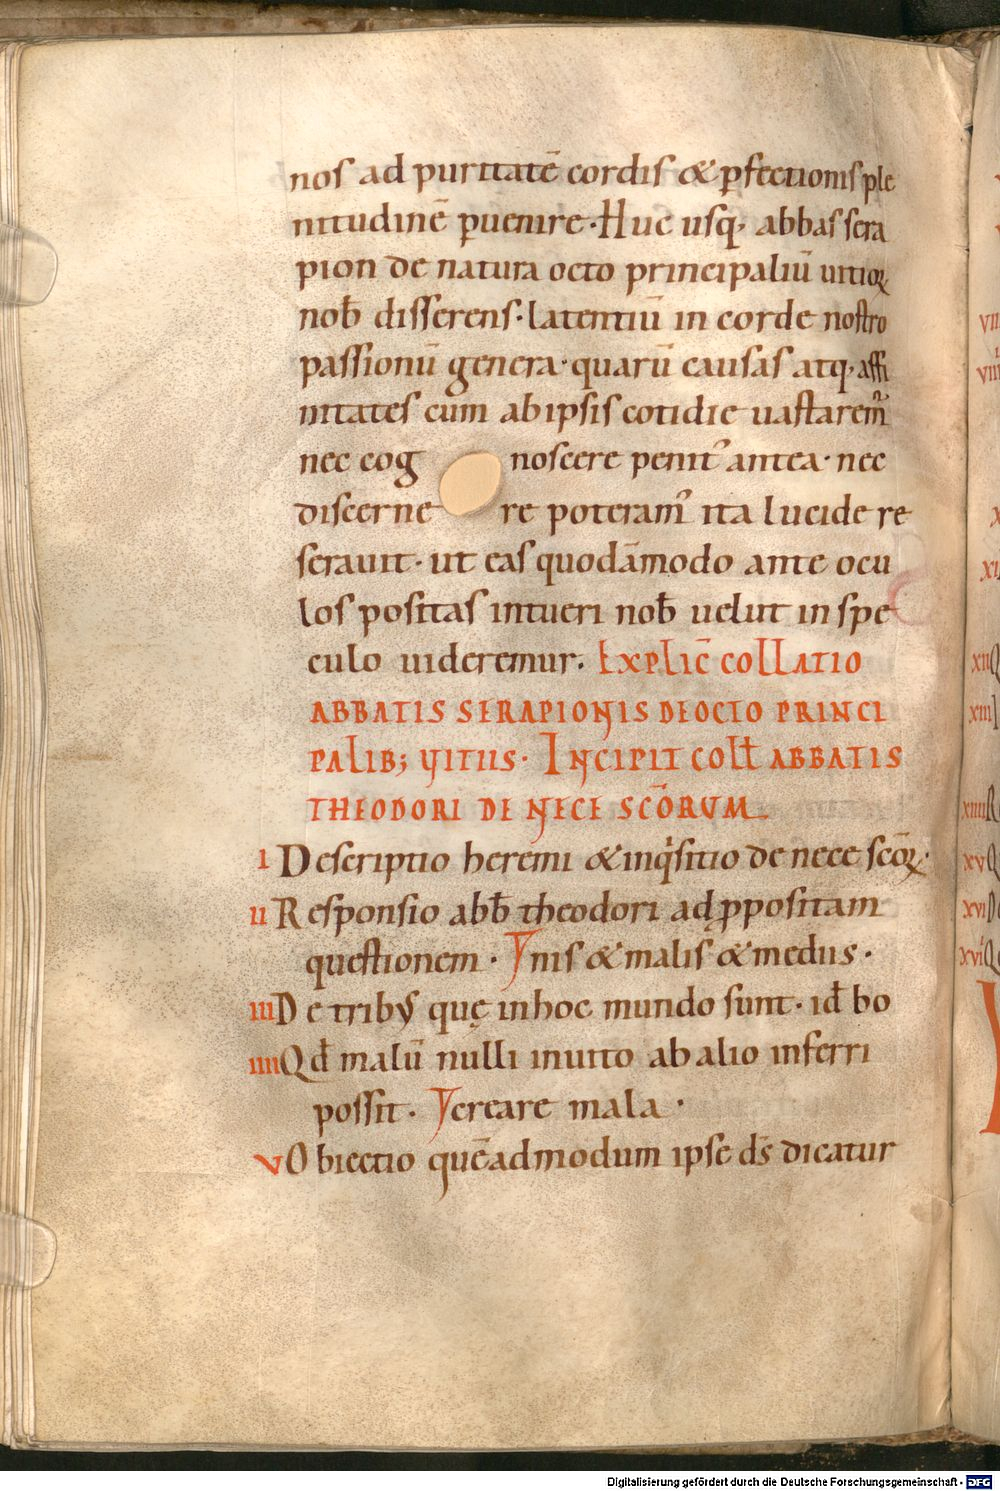 nos ad puritatē cordis & ꝑfectionis ple
nitudinē ꝑuenire · Huc usq; abbas sera
pion de natura octo principaliū uitioꝝ
nob̄ disserens · latentiū in corde nostro
passionū genera · quarū causas atq; affi
nitates cum ab ipsis cotidie uastaremꝰ
nec cog noscere penitꝰ antea · nec
discerne re poteramꝰ ita lucide re
serauit · ut eas quodāmodo ante ocu
los positas intueri nob̄ uelut in spe
culo uideremur. Explic̄ collatio
ABBATIS SERAPIONIS DE OCTO PRINCI
PALIB; VITIIS · INCIPIT COLL̄ ABBATIS
THEODORI DE NECE SC̄ORVM
I Descriptio heremi & inq'sitio de nece sc̄oꝝ ·
II Responsio abb̄ theodori ad ꝓpositam
questionem · Ynis & malis & mediis ·
III De tribꝰ quę in hoc mundo sunt · id̄ bo
IIII Qd̄ malū nulli inuito ab alio inferri
possit · Ycreare mala ·
V Obiectio quēadmodum ipse ds̄ dicatur
VII
VIII
X
XI
XII Q
XIII
XIIII R
XV Q
XVI D
XVI Q
Digitalisierung gefördert durch die Deutsche Forschungsgemeinschaft - DFG